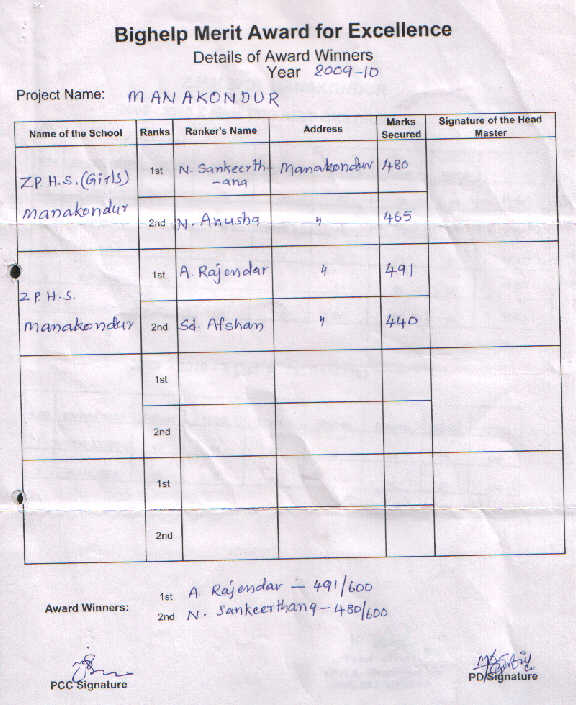 Bighelp Merit Award for Excellence
Details of Award Winners
Year 2009-10
Project Name: MANAKONDUR
Name of the School Ranks Ranker's Name Address Marks Secured Signature of the Head Master
Z.P.H.S.(Girls) Manakondur 1st N. Sankeerth-ana Manakondur 480
2nd N. Anusha " 465
Z.P.H.S. Manakondur 1st A. Rajendar " 491
2nd Sd. Afshan " 440
1st
2nd
1st
2nd
Award Winners:
1st A. Rajendar - 491/600
2nd N. Sankeerthana - 480/600
PCC Signature
PD/Signature